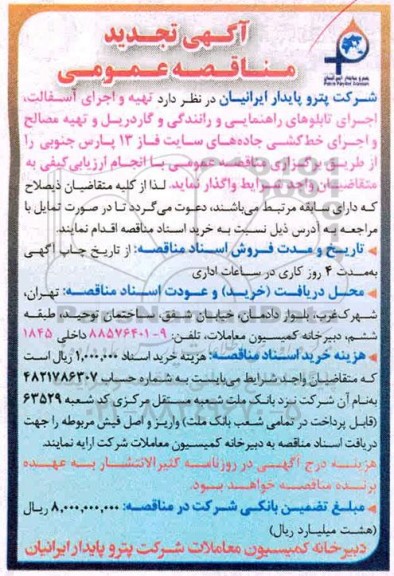 آگهی تجدید
مناقصه عمومی
پترو پایدار ایرانیان
Petro Paydar Iranian
شرکت پترو پایدار ایرانیان در نظر دارد تهیه و اجرای آسفالت،
اجرای تابلوهای راهنمایی و رانندگی و گاردریل و تهیه مصالح
و اجرای خط‌کشی جاده‌های سایت فاز ۱۳ پارس جنوبی را
از طریق برگزاری مناقصه عمومی با انجام ارزیابی کیفی به
متقاضیان واجد شرایط واگذار نماید. لذا از کلیه متقاضیان ذیصلاح
که دارای سابقه مرتبط می‌باشند، دعوت می‌گردد تا در صورت تمایل با
مراجعه به آدرس ذیل نسبت به خرید اسناد مناقصه اقدام نمایند.
◄ تاریخ و مدت فروش اسناد مناقصه: از تاریخ چاپ آگهی
به‌مدت ۴ روز کاری در ساعات اداری
◄ محل دریافت (خرید) و عودت اسناد مناقصه: تهران،
شهرک‌غرب، بلوار دادمان، خیابان شفق، ساختمان توحید، طبقه
ششم، دبیرخانه کمیسیون معاملات، تلفن: ۹-۸۸۵۷۶۴۰۱ داخلی ۱۸۴۵
◄ هزینه خرید اسناد مناقصه: هزینه خرید اسناد ۱,۰۰۰,۰۰۰ ریال است
که متقاضیان واجد شرایط می‌بایست به شماره حساب ۴۸۲۱۷۸۶۳۰۷
به‌نام آن شرکت نزد بانک ملت شعبه مستقل مرکزی کد شعبه ۶۳۵۲۹
(قابل پرداخت در تمامی شعب بانک ملت) واریز و اصل فیش مربوطه را جهت
دریافت اسناد مناقصه به دبیرخانه کمیسیون معاملات شرکت ارایه نمایند.
هزینه درج آگهی در روزنامه کثیرالانتشار به عهده
برنده مناقصه خواهد بود.
◄ مبلغ تضمین بانکی شرکت در مناقصه: ۸,۰۰۰,۰۰۰,۰۰۰ ریال
(هشت میلیارد ریال)
دبیرخانه کمیسیون معاملات شرکت پترو پایدار ایرانیان